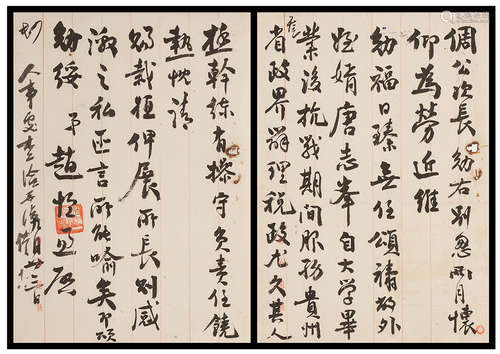 倜公次長勛右別忽兩月懷
仰為勞近維
勛福日臻無任頌禱敝外
姪婿唐志峯自大學畢
業後抗戰期間服務貴州
省政界辦理税政尤久其人
極幹練有操守負責任饒
熱忱請
賜裁植俾展所長則感
激之私匪言所能喻矣即頌
勛綏 弟趙恆惕啓
人事處查洽